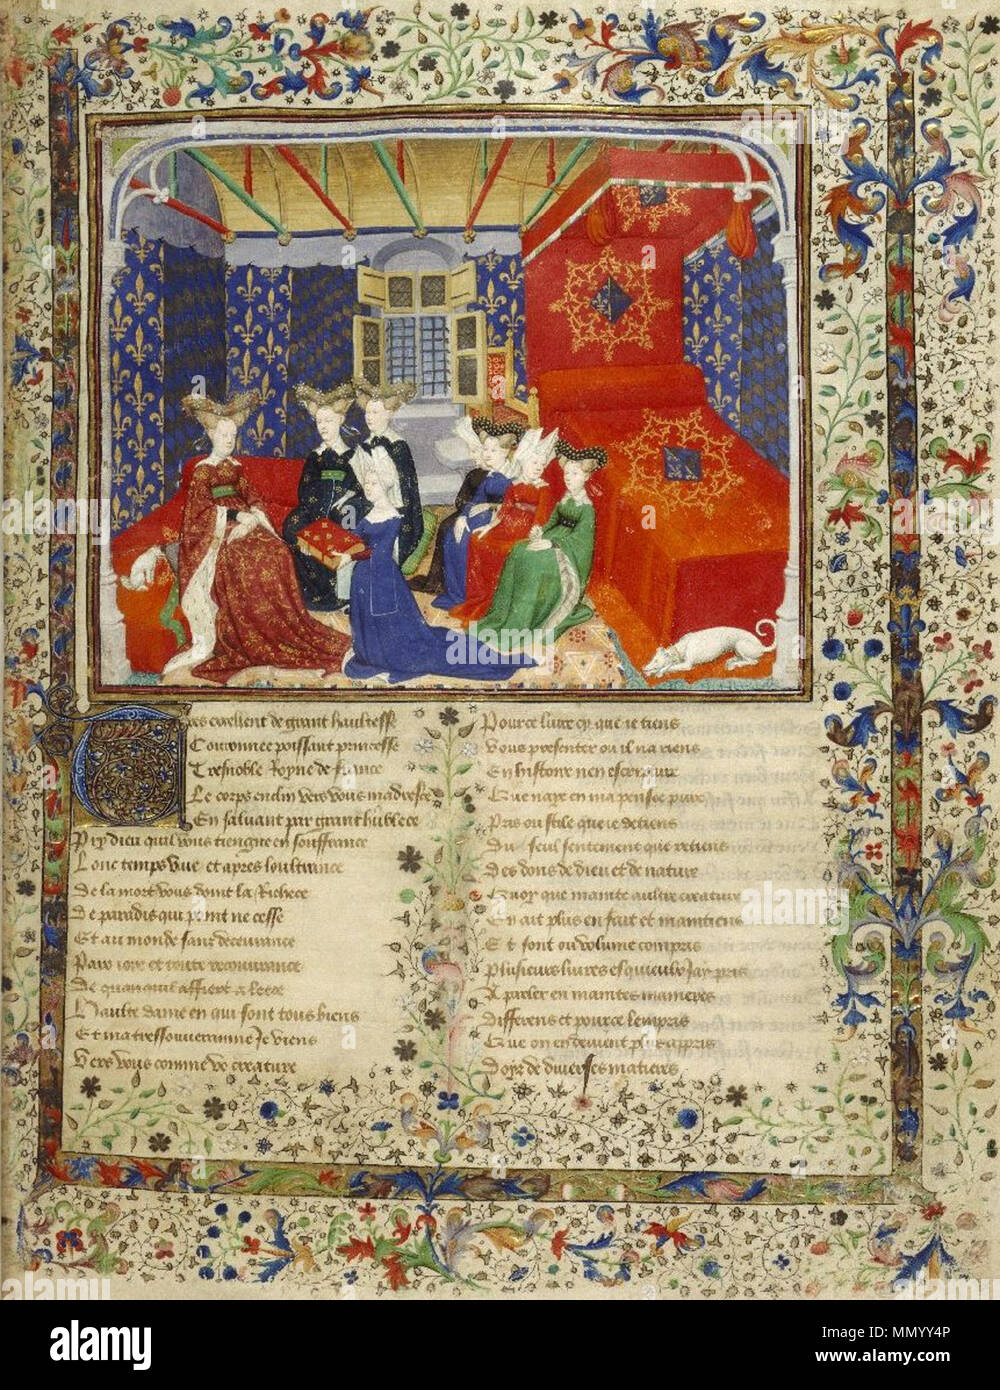 Tres excellent de grant haultesse
Couronnee poissant princesse
Tresnoble Royne de france
Le corps enclin vers vous madresce
En saluant par grant humblece
Pry dieu quil vous tiengne en souffrance
Lonc temps vive et apres loultrance
De la mort vous doint la Richece
De paradis qui point ne cesse
Et au monde sans decevrance
Paix ioye et toute recouvrance
De quanquil affiert a leece
Haulte dame en qui sont tous biens
Et ma tressouverainne Je viens
Vers vous comme vo creature
Pour ce livre cy que ie tiens
Vous presenter ou il na riens
En histoire nen escripture
Que naye en ma pensee pure
Pris ou stile que ie detiens
Du seul sentement que retiens
Des dons de dieu et de nature
Quoy que mainte aultre creature
En ait plus en fait et maintiens
Et sont ou volume compris
Plusieurs livres es quieulx Jay pris
A parler en maintes manieres
Differens et pour ce lempris
Que on en devient plus appris
Doyr de diverses matieres
alamy
Image ID: MMYY4P
www.alamy.com